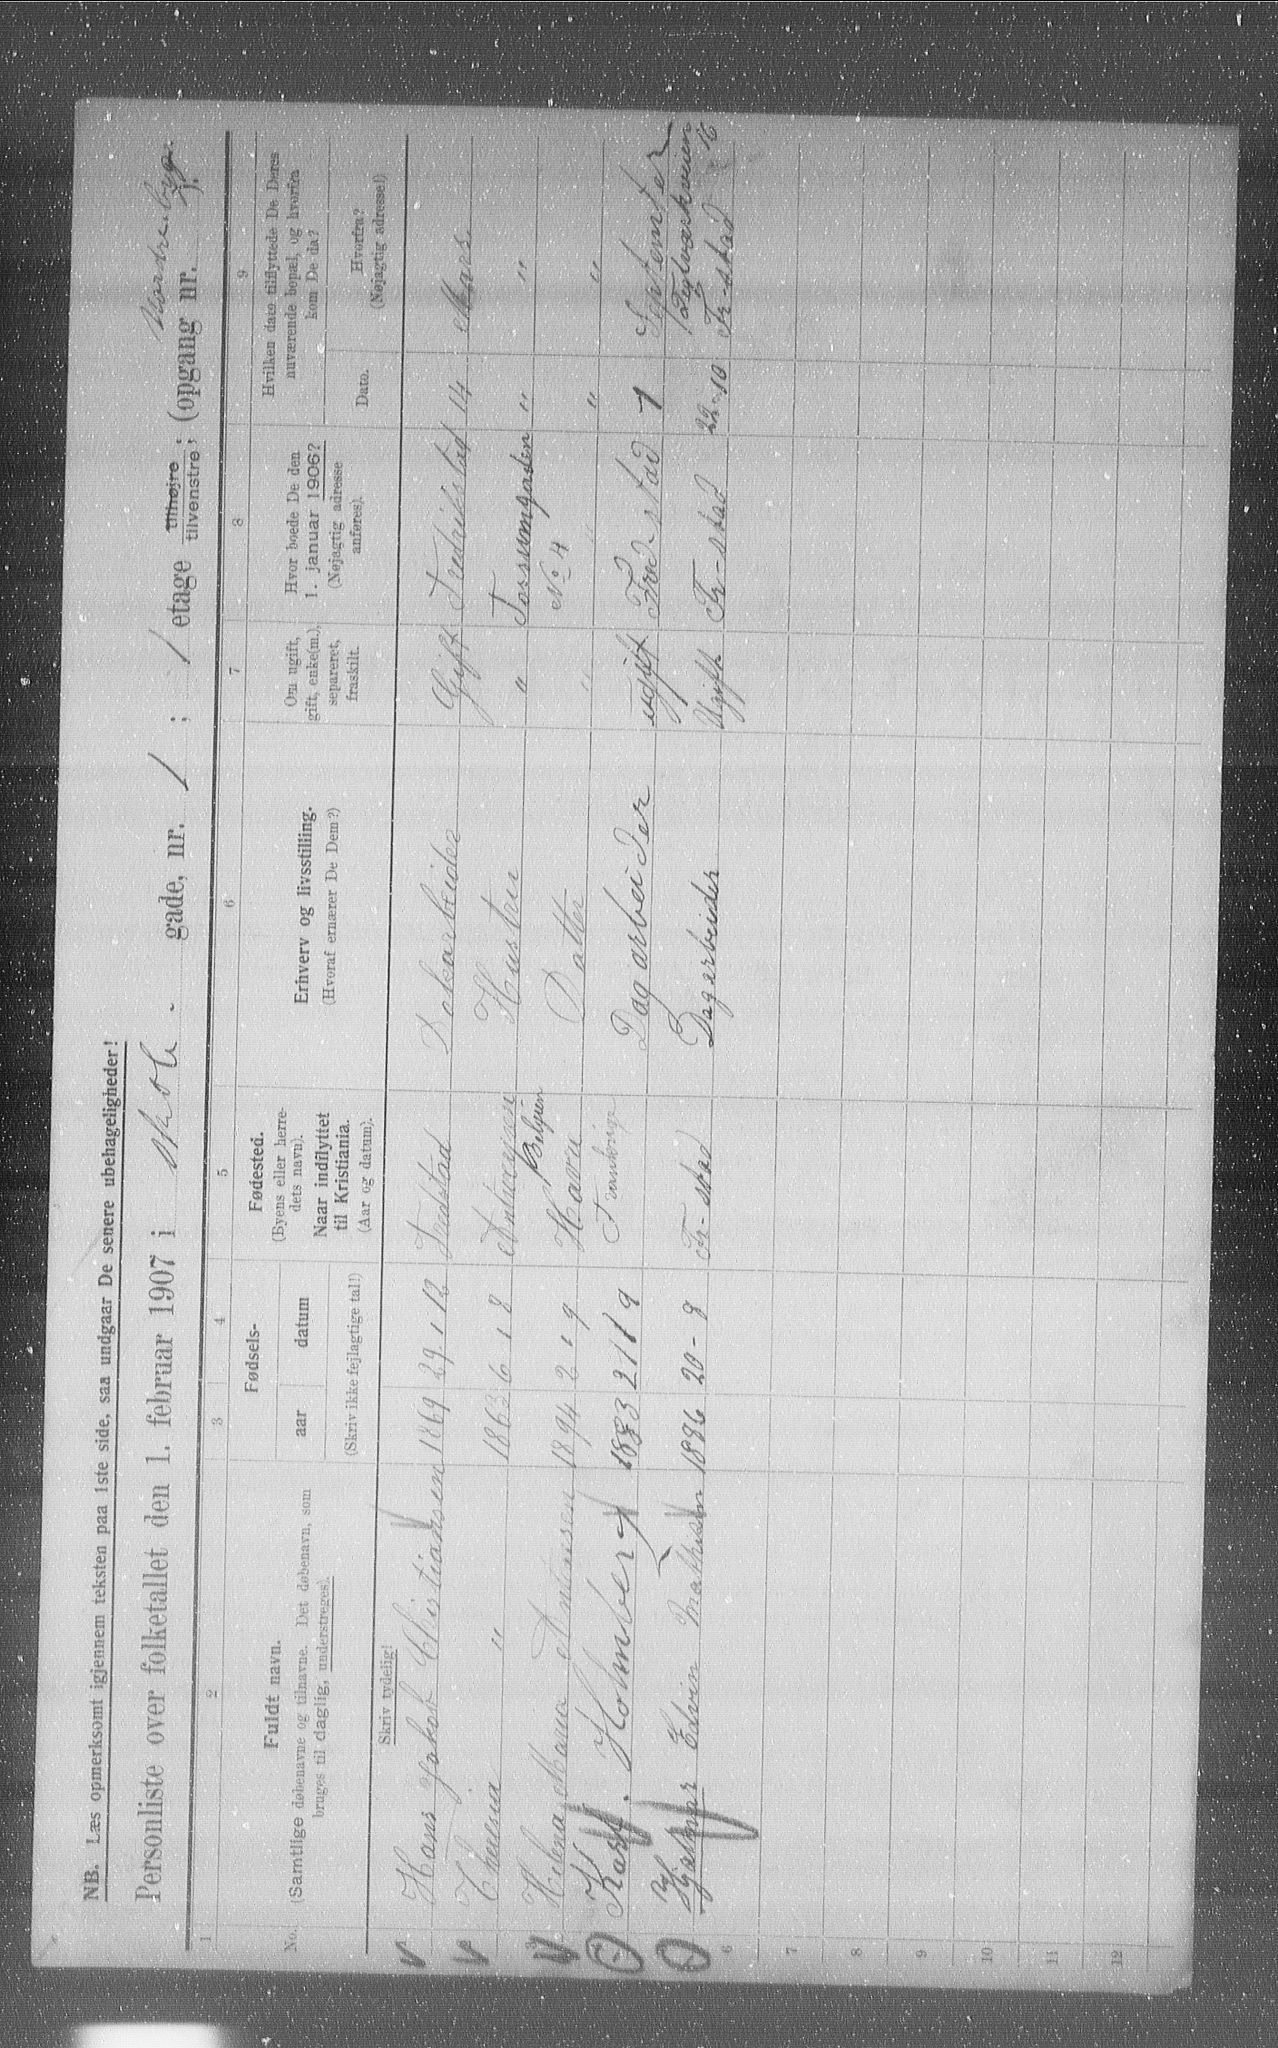 NB. Læs opmerksomt igjennem teksten paa 1ste side, saa undgaar De senere ubehageligheder!
Personliste over folketallet den 1. februar 1907 i gade, nr. 1 ; 1 etage tilhøjre tilvenstre; (opgang nr. ).
1 2 3 4 5 6 7 8 9
No.
Fuldt navn.
(Samtlige døbenavne og tilnavne. Det døbenavn, som
bruges til daglig, understreges).
Skriv tydelig!
Fødsels-
aar datum
(Skriv ikke fejlagtige tal!)
Fødested.
(Byens eller herre-
dets navn).
Naar indflyttet
til Kristiania.
(Aar og datum).
Erhverv og livsstilling.
(Hvoraf ernærer De Dem?)
Om ugift,
gift, enke(m.),
separeret,
fraskilt.
Hvor boede De den
1. januar 1906?
(Nøjagtig adresse
anføres).
Hvilken dato tilflyttede De Deres
nuværende bopæl, og hvorfra
kom De da?
Dato.
Hvorfra?
(Nøjagtig adresse!)
Hans Jakob Christiansen 1869 29 1 12 Fredstad Dokarbeider Gift Fredrikstad 14 Mars
Theresia " 1863 6 1 8 Hustru " Torsumgaden " "
Belgien
Helena Maria 1894 2 1 9 Havn Datter " No 4 " "
Karl. Holmberg 1883 21 1 9 Dagarbeider ugift Fredstad 1 September
Hjalmar Edvin Mathisen 1886 20 - 8 Fr-stad Dagarbeider Ugift Fr-stad 22-10 Teglværksveien 16
Fr-stad
6
7
8
9
10
11
12